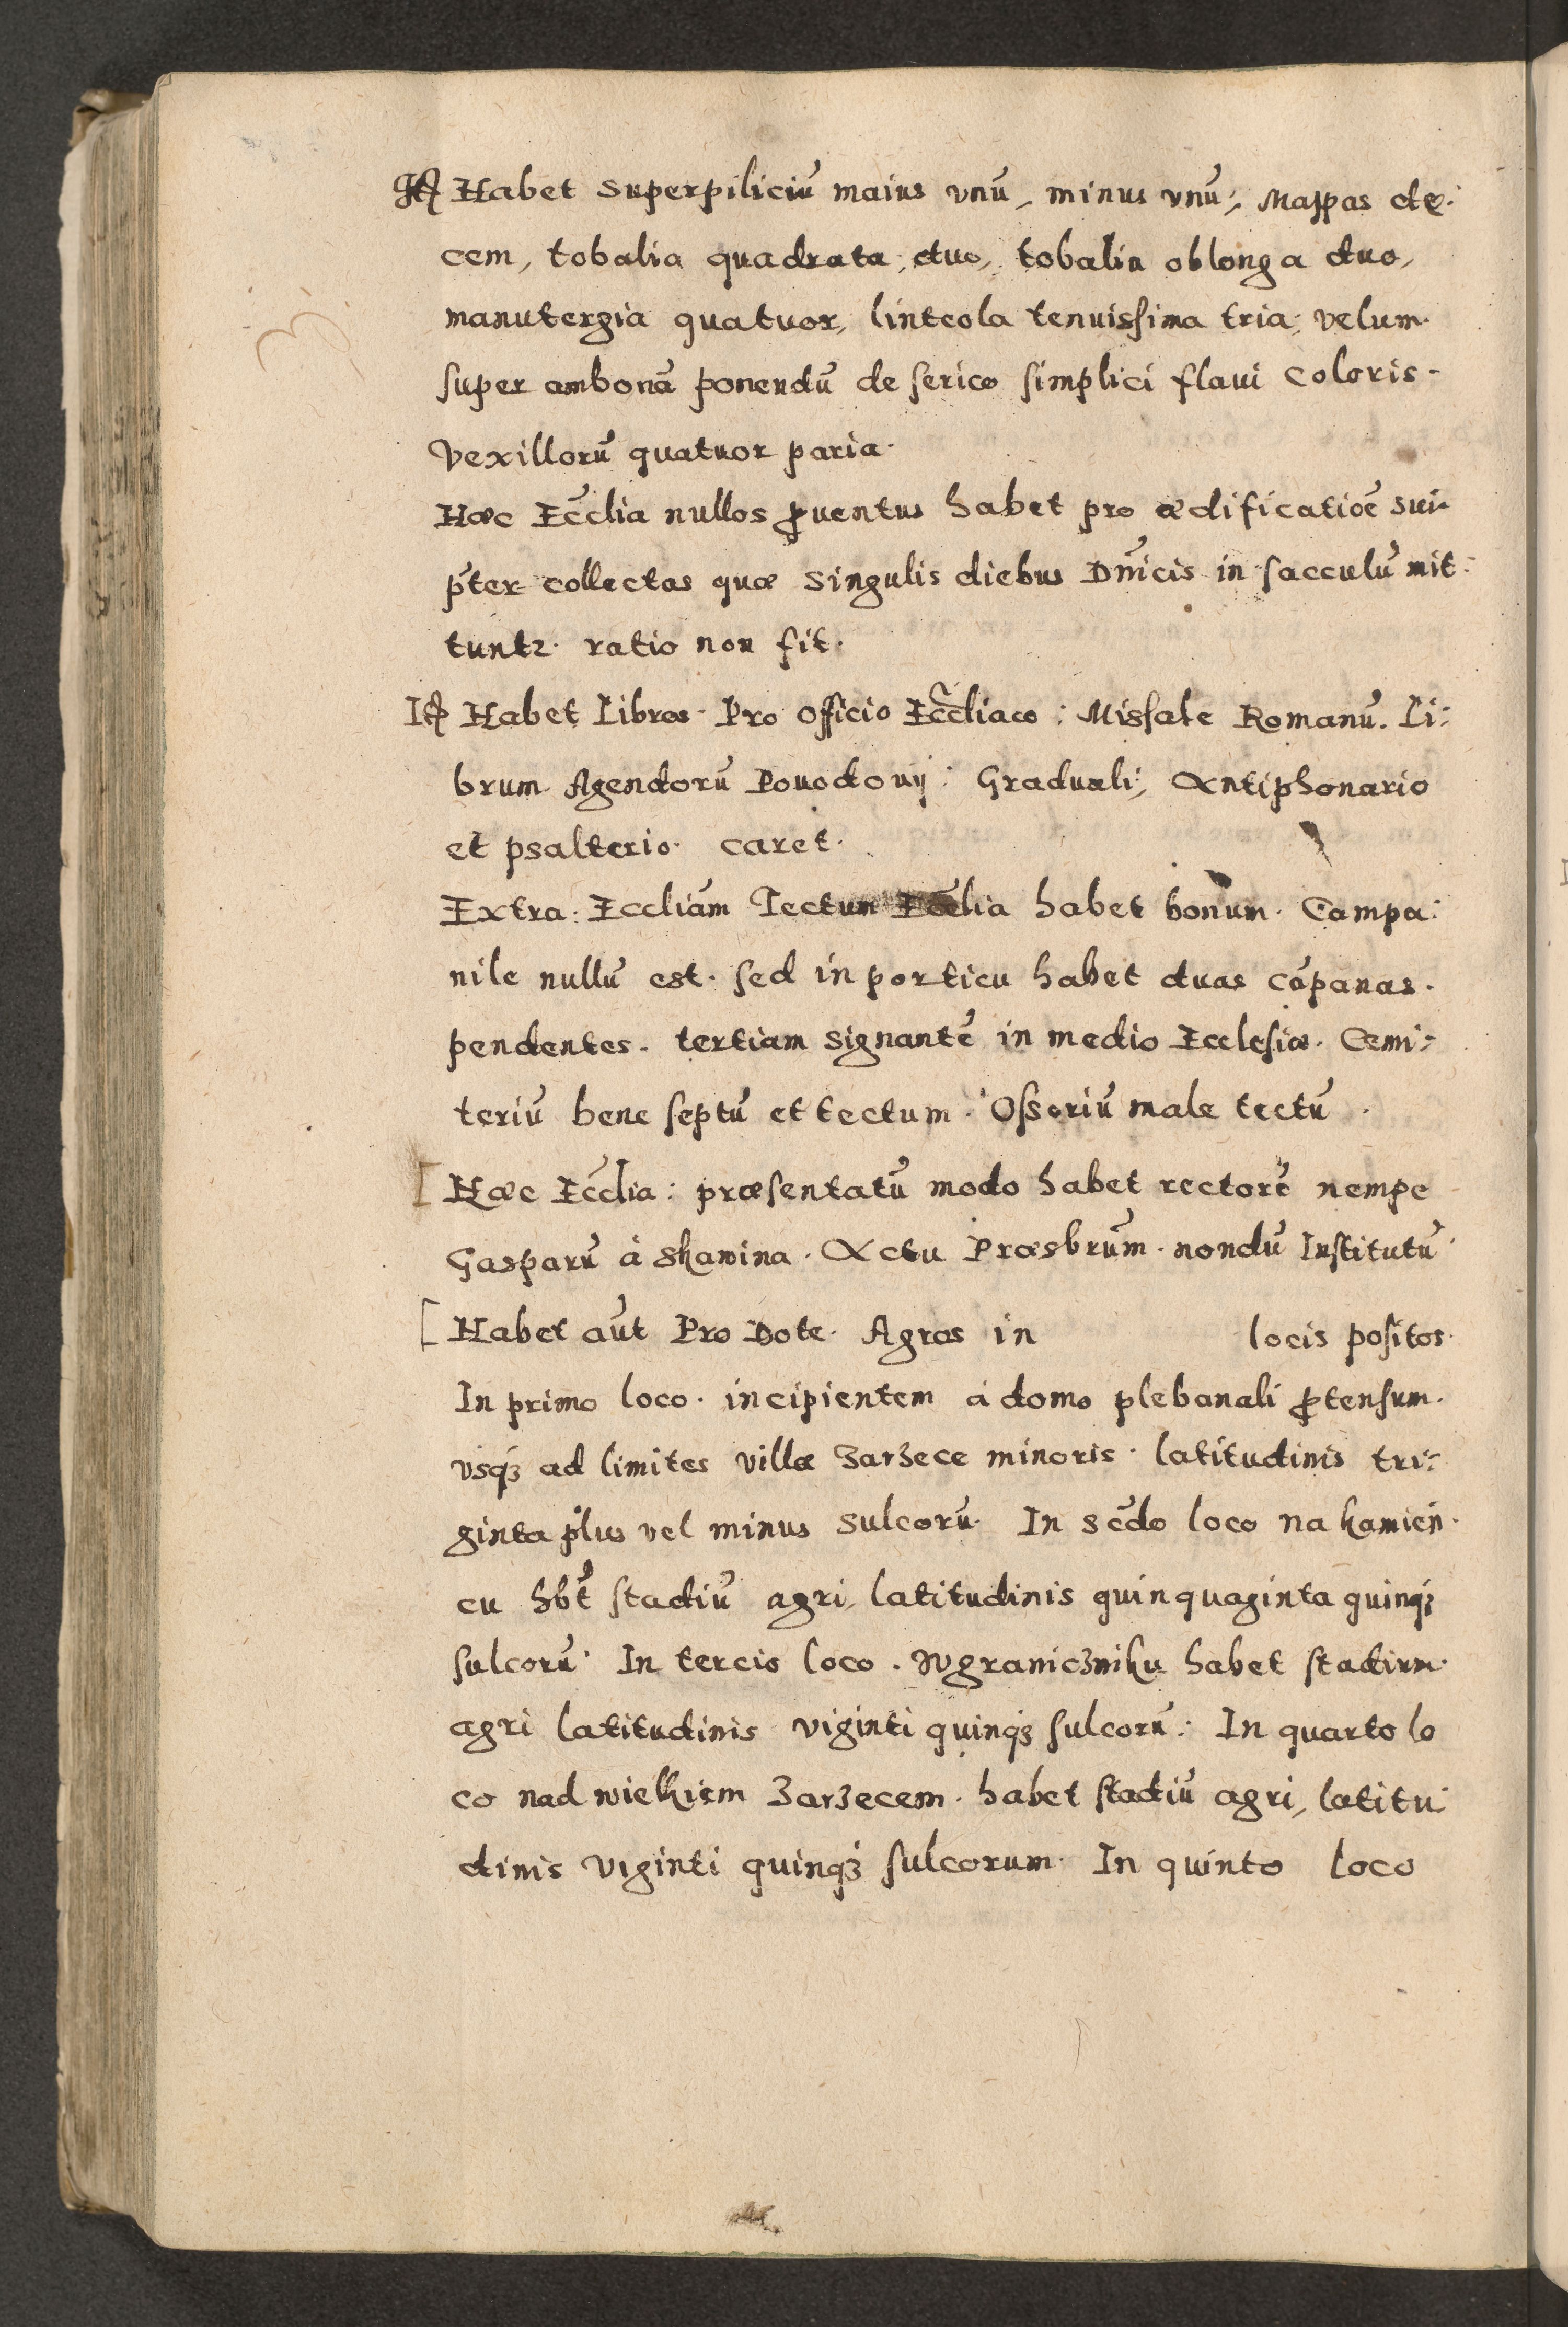 Itē Habet superpiliciū maius vnū, minus vnū, Mappas de:
cem, tobalia quadrata duo, tobalia oblonga duo,
manutergia quatuor, linteola tenuissima tria, velum
super ambonā ponendū de serico simplici flaui coloris.
Vexillorū quatuor paria.
Hæc Ecc̃lia nullos ꝓuentus habet pro ædificatiōe sui
p̃ter collectas quæ singulis diebus Dñicis in sacculū mit:
tuntr. ratio non fit.
Itē Habet Libros Pro officio Ecc̃liaco: Missale Romanū. Li:
brum Agendorū Pouodouij: Graduali, Antiphonario
et psalterio caret.
Extra: Eccliām Tectum Ecc̄lia habet bonum. Campa:
nile nullū est. sed in porticu habet duas cāpanas.
pendentes. tertiam signantē in medio Ecclesiæ. Cemi:
teriū bene septū et tectum. Ossoriū male tectū.
[Hæc Ecc̃lia: præsentatū modo habet rectorē nempe
Gasparū à Skawina. Actu Præsbrūm. nondū Institutū
[Habet aūt Pro Dote. Agros in locis positos.
In primo loco. incipientem à domo plebanali ꝓtensum.
vsqꝫ ad limites villæ Zarzece minoris. latitudinis tri:
ginta plus vel minus sulcorū. In scd̄o loco na kamień
cu hb̄t stadiū agri, latitudinis quinquaginta quinqꝫ
sulcorū. In tercio loco. Wgraniczniku habet stadium.
agri latitudinis viginti quinqꝫ sulcorū: In quarto lo
co nad wielkiem Zarzecem. habet stadiū agri, latitu
dinis viginti quinqꝫ sulcorum. In quinto loco